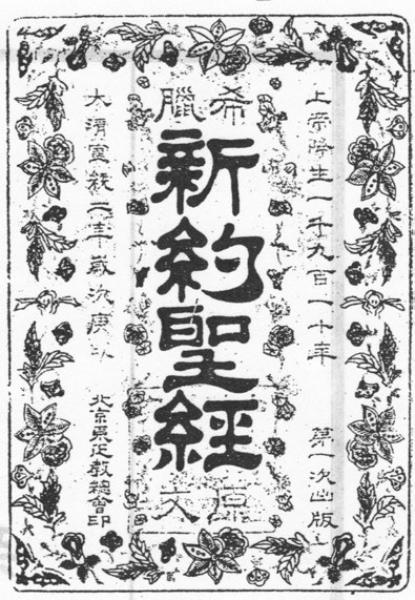 上帝降生一千九百一十年 第一次出版
希臘
新約聖經
大清宣統二年歲次庚戌
北京東正教總會印